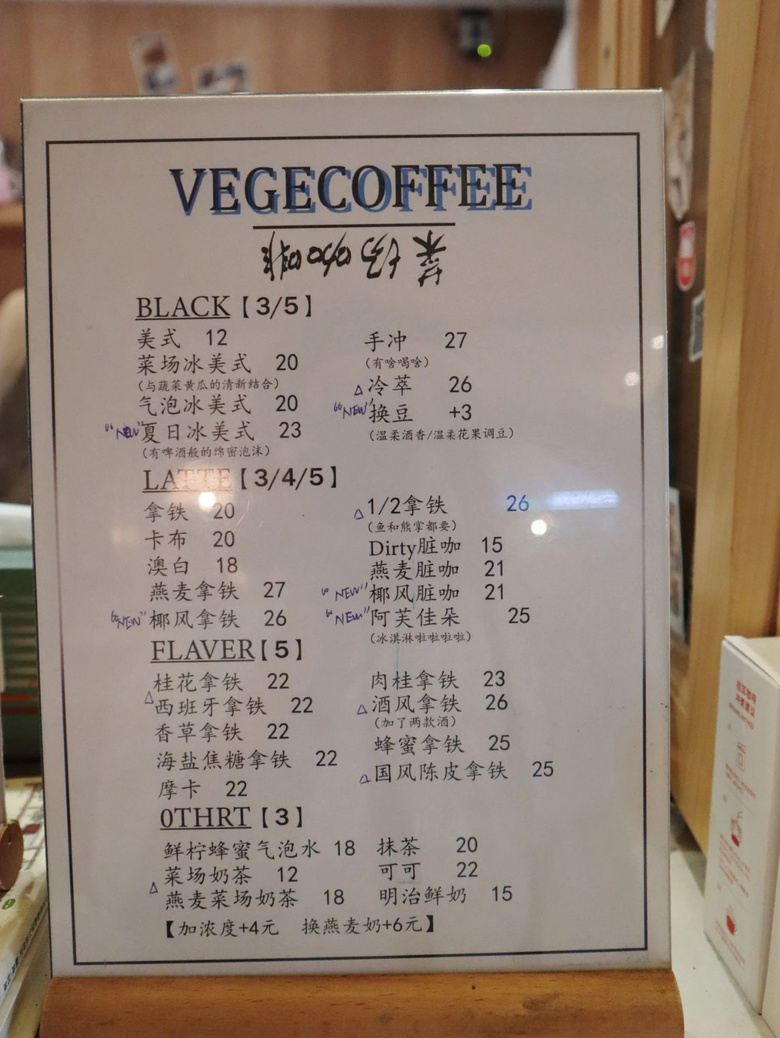 VEGECOFFEE
菜场咖啡
BLACK【3/5】
美式 12
菜场冰美式 20
(与蔬菜黄瓜的清新结合)
气泡冰美式 20
"NEW" 夏日冰美式 23
(有啤酒般的绵密泡沫)
手冲 27
(有啥喝啥)
△冷萃 26
"NEW" 换豆 +3
(温柔酒香/温柔花果调豆)
LATTE【3/4/5】
拿铁 20
卡布 20
澳白 18
燕麦拿铁 27
"NEW" 椰风拿铁 26
△1/2拿铁 26
(鱼和熊掌都要)
Dirty脏咖 15
燕麦脏咖 21
"NEW" 椰风脏咖 21
"NEW" 阿芙佳朵 25
(冰淇淋啦啦啦啦)
FLAVER【5】
桂花拿铁 22
△西班牙拿铁 22
香草拿铁 22
海盐焦糖拿铁 22
摩卡 22
肉桂拿铁 23
△酒风拿铁 26
(加了两款酒)
蜂蜜拿铁 25
△国风陈皮拿铁 25
0THRT【3】
鲜柠蜂蜜气泡水 18
菜场奶茶 12
△燕麦菜场奶茶 18
抹茶 20
可可 22
明治鲜奶 15
【加浓度+4元 换燕麦奶+6元】